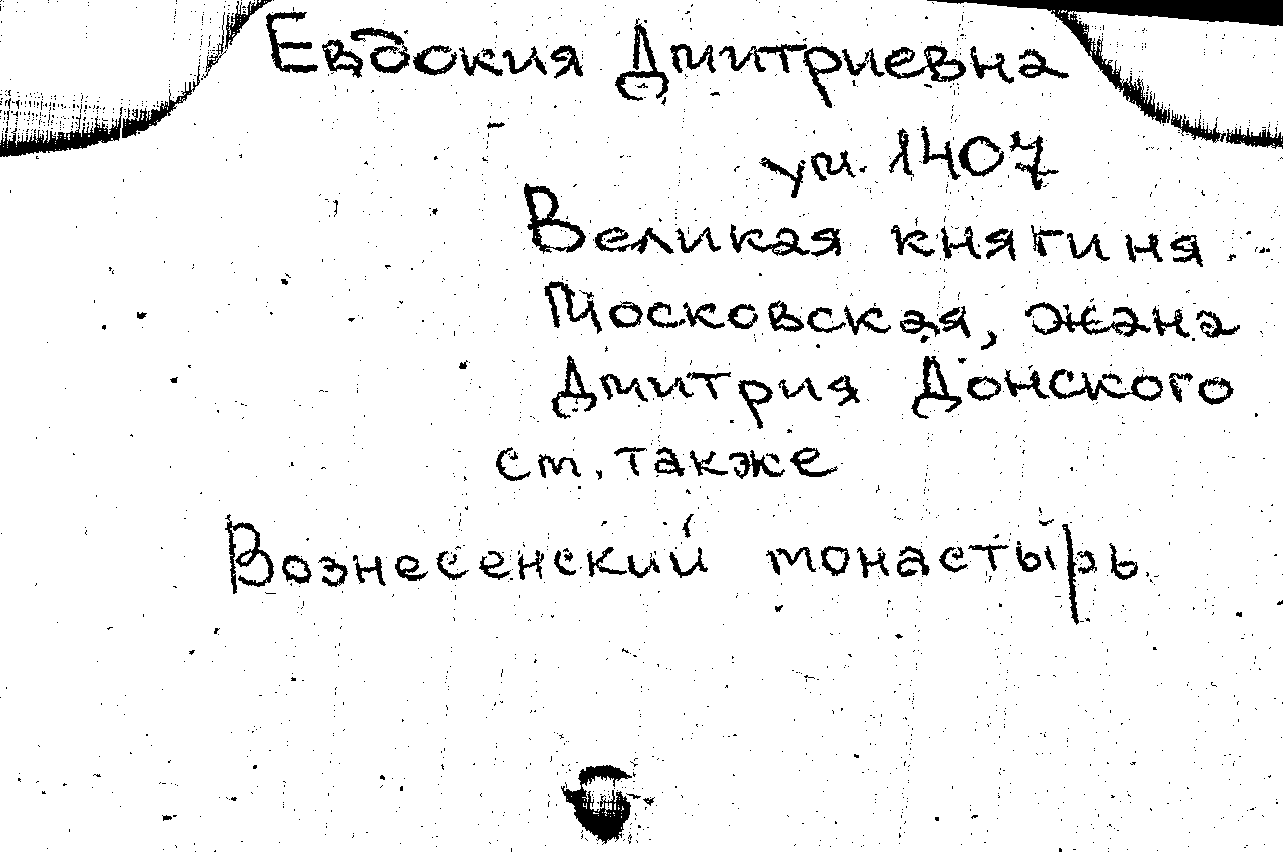 Евдокия Дмитриевна
ум. 1407
Великая княгиня
Московская, жана
Дмитрия Донского
см. также
Вознесенский монастырь